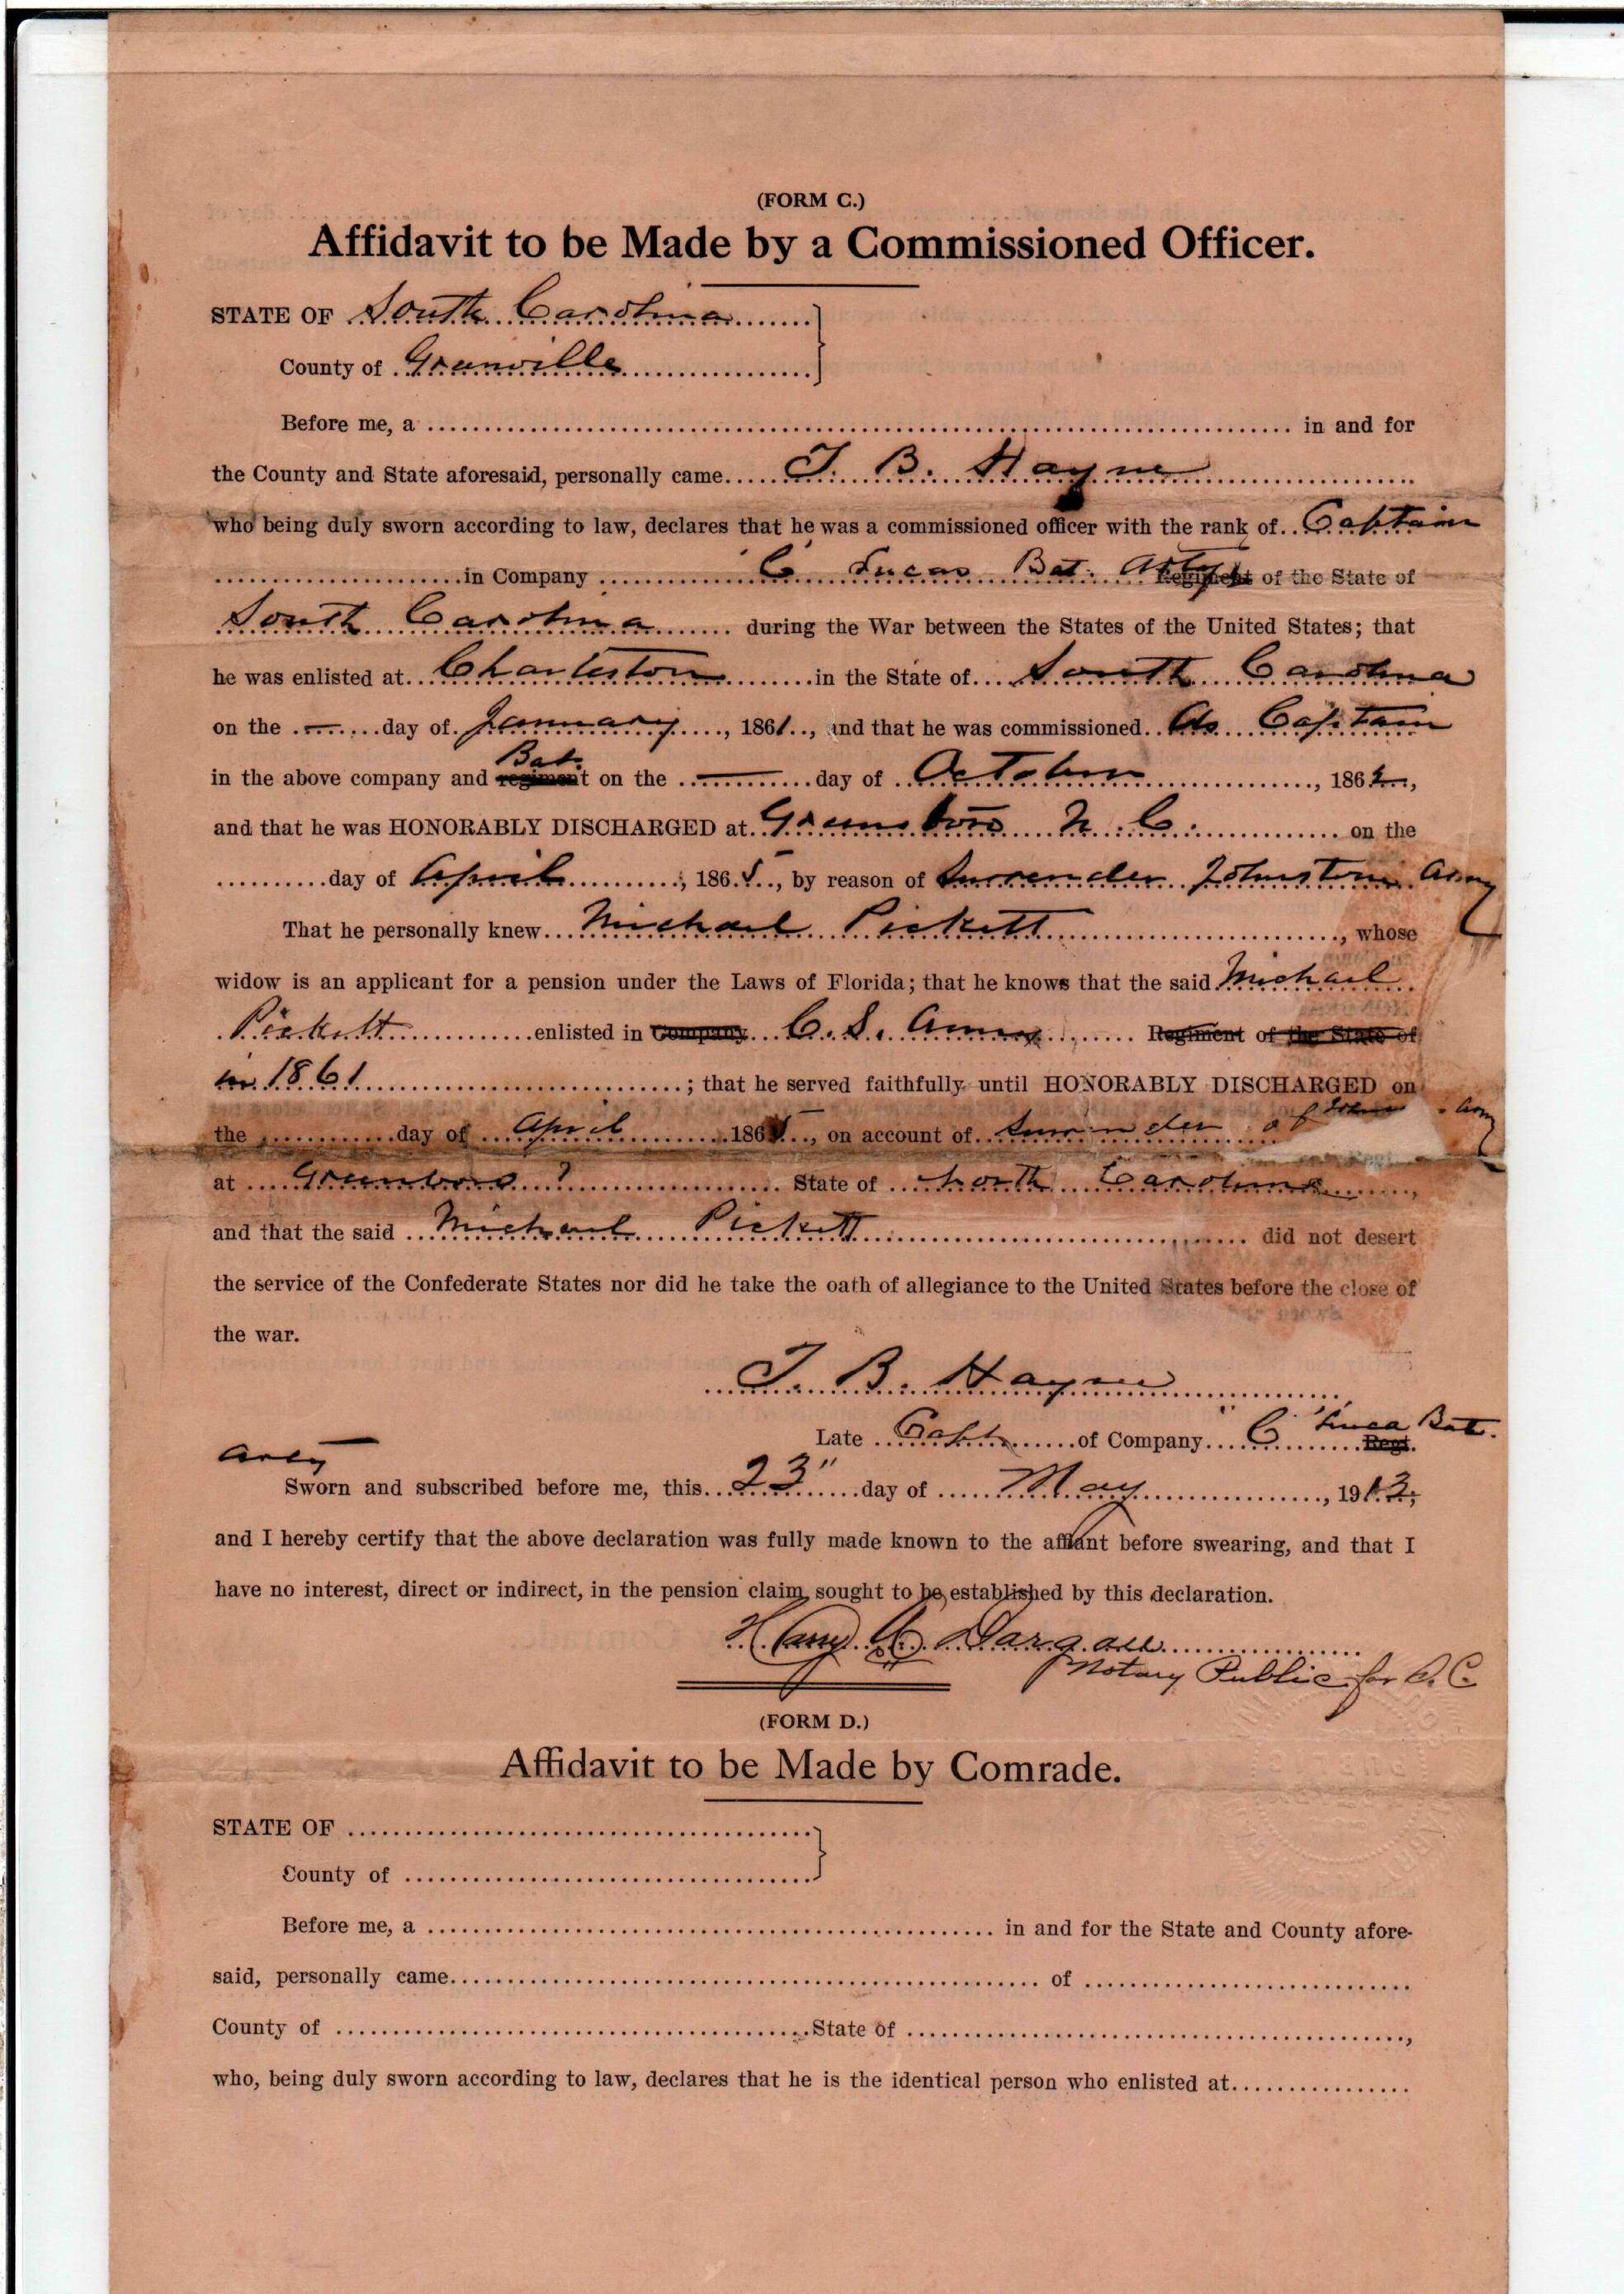 (FORM C.)
Affidavit to be Made by a Commissioned Officer.
STATE OF South Carolina
County of Greenville
Before me, a in and for
the County and State aforesaid, personally came T. B. Hayne
who being duly sworn according to law, declares that he was a commissioned officer with the rank of Captain
in Company C Lucas Bat. Arty Regiment of the State of
South Carolina during the War between the States of the United States; that
he was enlisted at Charleston in the State of South Carolina
on the — day of January, 1861, and that he was commissioned As Captain
Bat.
in the above company and regiment on the — day of October, 186
and that he was HONORABLY DISCHARGED at Greensboro N. C. on the
day of April, 1865, by reason of Surrender Johnstons Army
That he personally knew Michael Pickett, whose
widow is an applicant for a pension under the Laws of Florida; that he knows that the said Michael
Pickett enlisted in Company C. S. Army Regiment of the State of
in 1861; that he served faithfully until HONORABLY DISCHARGED on
the day of April 1865, on account of Surrender of Army
at Greensboro ? State of North Carolina,
and that the said Michael Pickett did not desert
the service of the Confederate States nor did he take the oath of allegiance to the United States before the close of
the war.
T. B. Hayne
Late Capt of Company "C" Lucas Bat. Regt.
Arty
Sworn and subscribed before me, this 23" day of May, 1913,
and I hereby certify that the above declaration was fully made known to the affiant before swearing, and that I
have no interest, direct or indirect, in the pension claim sought to be established by this declaration.
Harry A. Dargan
Notary Public for S. C.
(FORM D.)
Affidavit to be Made by Comrade.
STATE OF
County of
Before me, a in and for the State and County afore-
said, personally came of
County of State of ,
who, being duly sworn according to law, declares that he is the identical person who enlisted at